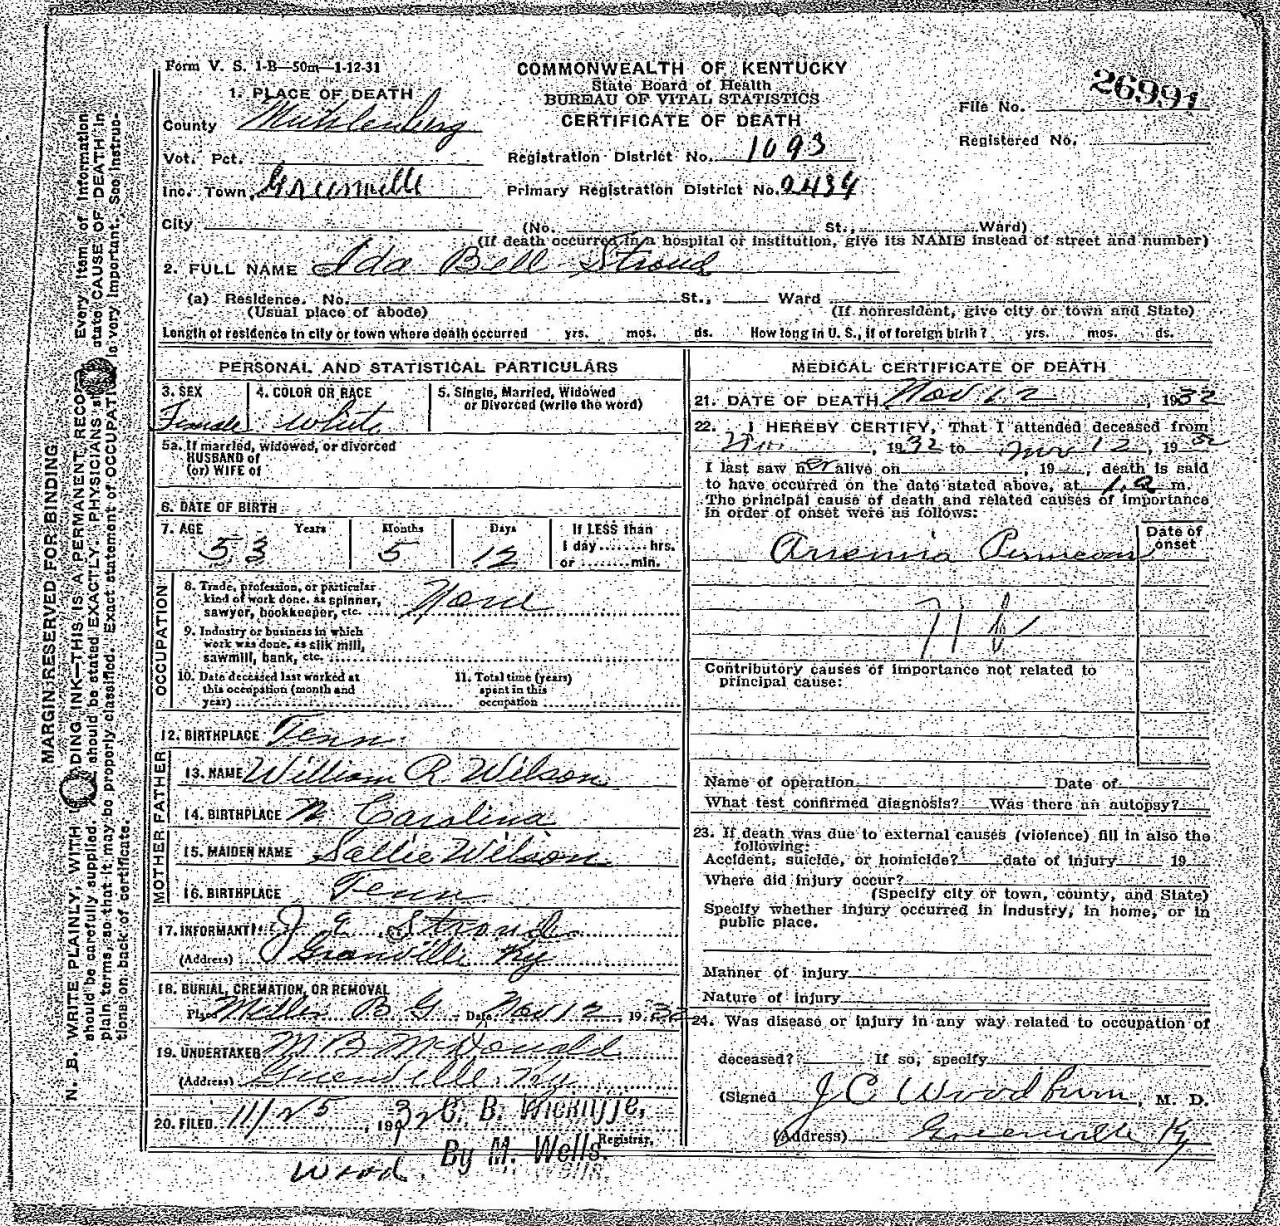 Form V. S. 1-B—50m—1-12-31
COMMONWEALTH OF KENTUCKY
State Board of Health
BUREAU OF VITAL STATISTICS
CERTIFICATE OF DEATH
File No. 26991
Registered No.
1. PLACE OF DEATH
County Muhlenberg
Vot. Pct.
Registration District No. 1093
Inc. Town Greenville
Primary Registration District No. 2434
City (No. St., Ward)
(If death occurred in a hospital or institution, give its NAME instead of street and number)
2. FULL NAME Ida Bell Stroud
(a) Residence. No. St., Ward
(Usual place of abode) (If nonresident, give city or town and State)
Length of residence in city or town where death occurred yrs. mos. ds. How long in U. S., if of foreign birth? yrs. mos. ds.
MARGIN RESERVED FOR BINDING
N. B. WRITE PLAINLY, WITH DING INK—THIS IS A PERMANENT RECO Every item of information
should be carefully supplied. should be stated EXACTLY. PHYSICIANS state CAUSE OF DEATH in
plain terms, so that it may be properly classified. Exact statement of OCCUPATI is very important. See instruc-
tions on back of certificate.
PERSONAL AND STATISTICAL PARTICULARS
3. SEX Female
4. COLOR OR RACE white
5. Single, Married, Widowed
or Divorced (write the word)
5a. If married, widowed, or divorced
HUSBAND of
(or) WIFE of
6. DATE OF BIRTH
7. AGE Years Months Days If LESS than
53 5 12 1 day hrs.
or min.
OCCUPATION
8. Trade, profession, or particular
kind of work done, as spinner,
sawyer, bookkeeper, etc. None
9. Industry or business in which
work was done, as silk mill,
sawmill, bank, etc.
10. Date deceased last worked at
this occupation (month and
year)
11. Total time (years)
spent in this
occupation
12. BIRTHPLACE Tenn.
FATHER
13. NAME William R. Wilson
14. BIRTHPLACE N Carolina
MOTHER
15. MAIDEN NAME Sallie Wilson
16. BIRTHPLACE Tenn
17. INFORMANT J E Stroud
(Address) Granville Ky
18. BURIAL, CREMATION, OR REMOVAL
Place Miller B G Date Nov 12, 1932
19. UNDERTAKER M B McDonald
(Address) Greenville, Ky
20. FILED 11/25, 1932 C. B. Wickliffe,
Registrar.
By M. Wells.
Wood.
MEDICAL CERTIFICATE OF DEATH
21. DATE OF DEATH Nov 12, 1932
22. I HEREBY CERTIFY, That I attended deceased from
, 1932 to Nov 12, 1932
I last saw her alive on , 19 , death is said
to have occurred on the date stated above, at 1 a m.
The principal cause of death and related causes of importance
in order of onset were as follows:
Date of
onset
Anemia Pernicious
Contributory causes of importance not related to
principal cause:
Name of operation Date of
What test confirmed diagnosis? Was there an autopsy?
23. If death was due to external causes (violence) fill in also the
following:
Accident, suicide, or homicide? date of injury 19
Where did injury occur?
(Specify city or town, county, and State)
Specify whether injury occurred in industry, in home, or in
public place.
Manner of injury
Nature of injury
24. Was disease or injury in any way related to occupation of
deceased? If so, specify
(Signed J C Woodburn, M. D.
(Address) Greenville Ky